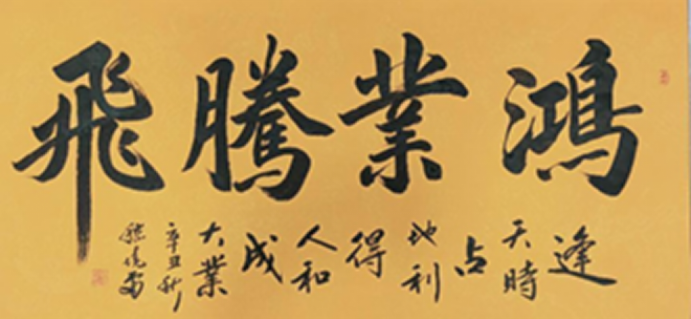 鴻業騰飛
逢
天時
占
地利
得
人和
成
大業
辛丑秋